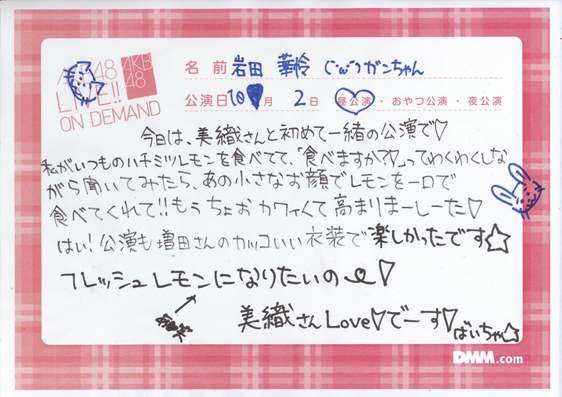 AKB48
LIVE!!
ON DEMAND
AKB
48
名前 岩田 華怜 (・ω・)ガンちゃん
公演日 10月 2日 昼公演・おやつ公演・夜公演
今日は、美織さんと初めて一緒の公演で♡
私がいつものハチミツレモンを食べてて、「食べますか?♡」ってわくわくしな
がら聞いてみたら、あの小さなお顔でレモンを一口で
食べてくれて!!もうちょおカワイくて高まりまーしーた♡
はい!公演も増田さんのカッコいい衣装で楽しかったです☆
フレッシュレモンになりたいの♡
美織さんLove♡でーす♡ ばいちゃ☆
DMM.com